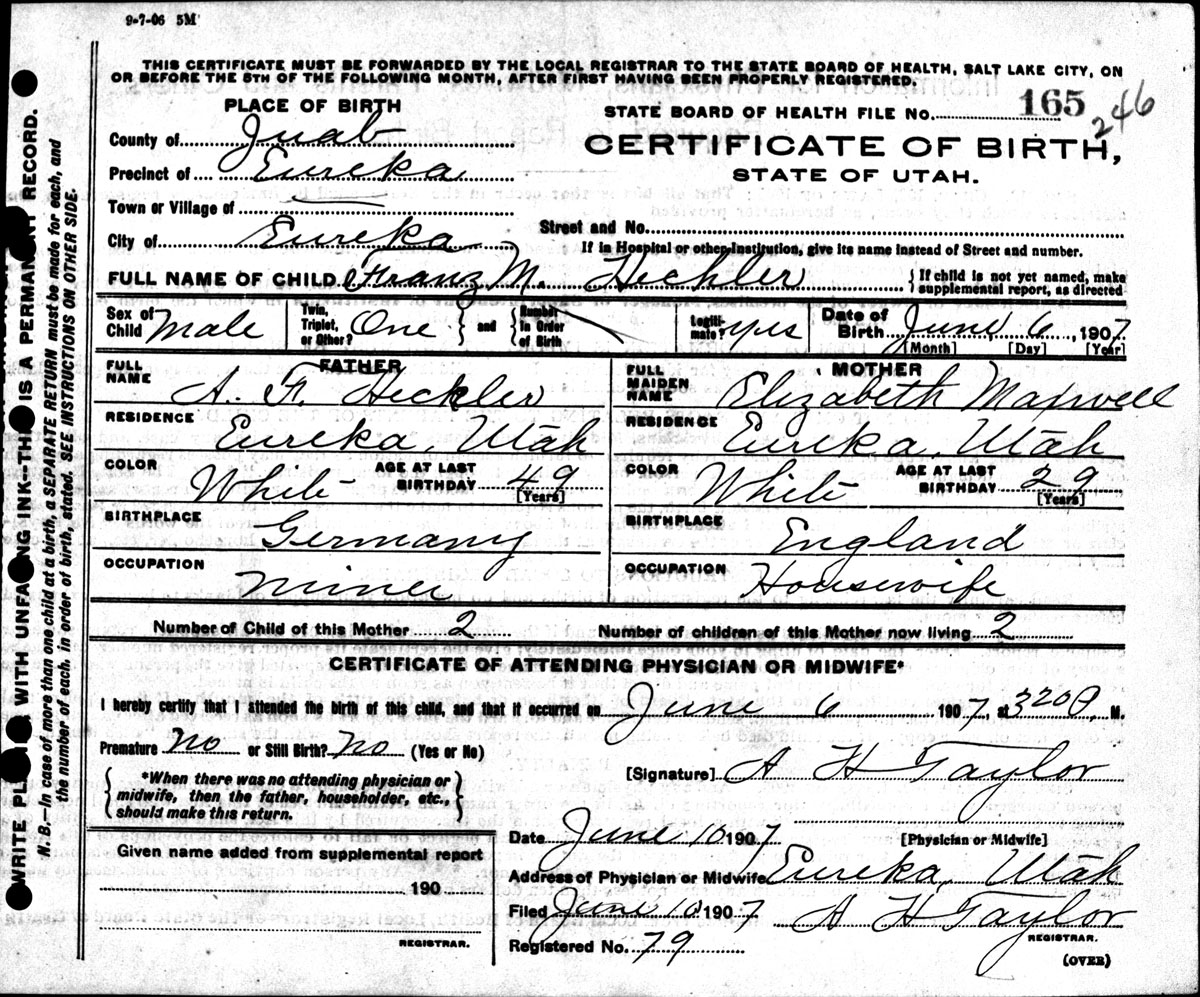 9-7-06 5M
THIS CERTIFICATE MUST BE FORWARDED BY THE LOCAL REGISTRAR TO THE STATE BOARD OF HEALTH, SALT LAKE CITY, ON
OR BEFORE THE 5TH OF THE FOLLOWING MONTH, AFTER FIRST HAVING BEEN PROPERLY REGISTERED.
PLACE OF BIRTH
STATE BOARD OF HEALTH FILE No. 165 246
County of Juab
CERTIFICATE OF BIRTH,
Precinct of Eureka
STATE OF UTAH.
Town or Village of
Street and No.
City of Eureka
If in Hospital or other Institution, give its name instead of Street and number.
FULL NAME OF CHILD Franz M. Heckler
If child is not yet named, make supplemental report, as directed
Sex of Child Male
Twin, Triplet, or Other? One
and Number in Order of Birth
Legitimate? yes
Date of Birth June 6, 1907
[Month] [Day] [Year]
FATHER
FULL NAME A. F. Heckler
RESIDENCE Eureka, Utah
COLOR White AGE AT LAST BIRTHDAY 49
[Years]
BIRTHPLACE Germany
OCCUPATION Miner
MOTHER
FULL MAIDEN NAME Elizabeth Maxwell
RESIDENCE Eureka, Utah
COLOR White AGE AT LAST BIRTHDAY 29
[Years]
BIRTHPLACE England
OCCUPATION Housewife
Number of Child of this Mother 2 Number of children of this Mother now living 2
CERTIFICATE OF ATTENDING PHYSICIAN OR MIDWIFE*
I hereby certify that I attended the birth of this child, and that it occurred on June 6 1907, at 320 P. M.
Premature no or Still Birth? no (Yes or No)
*When there was no attending physician or
midwife, then the father, householder, etc.,
should make this return.
[Signature] A H Taylor
[Physician or Midwife]
Date June 10 1907
Address of Physician or Midwife Eureka, Utah
Filed June 10 1907 A H Taylor
REGISTRAR.
Registered No. 79
(OVER)
Given name added from supplemental report
190
REGISTRAR.
WITH UNFADING INK--THIS IS A PERMANENT RECORD.
N. B.--In case of more than one child at a birth, a SEPARATE RETURN must be made for each, and
the number of each, in order of birth, stated. SEE INSTRUCTIONS ON OTHER SIDE.